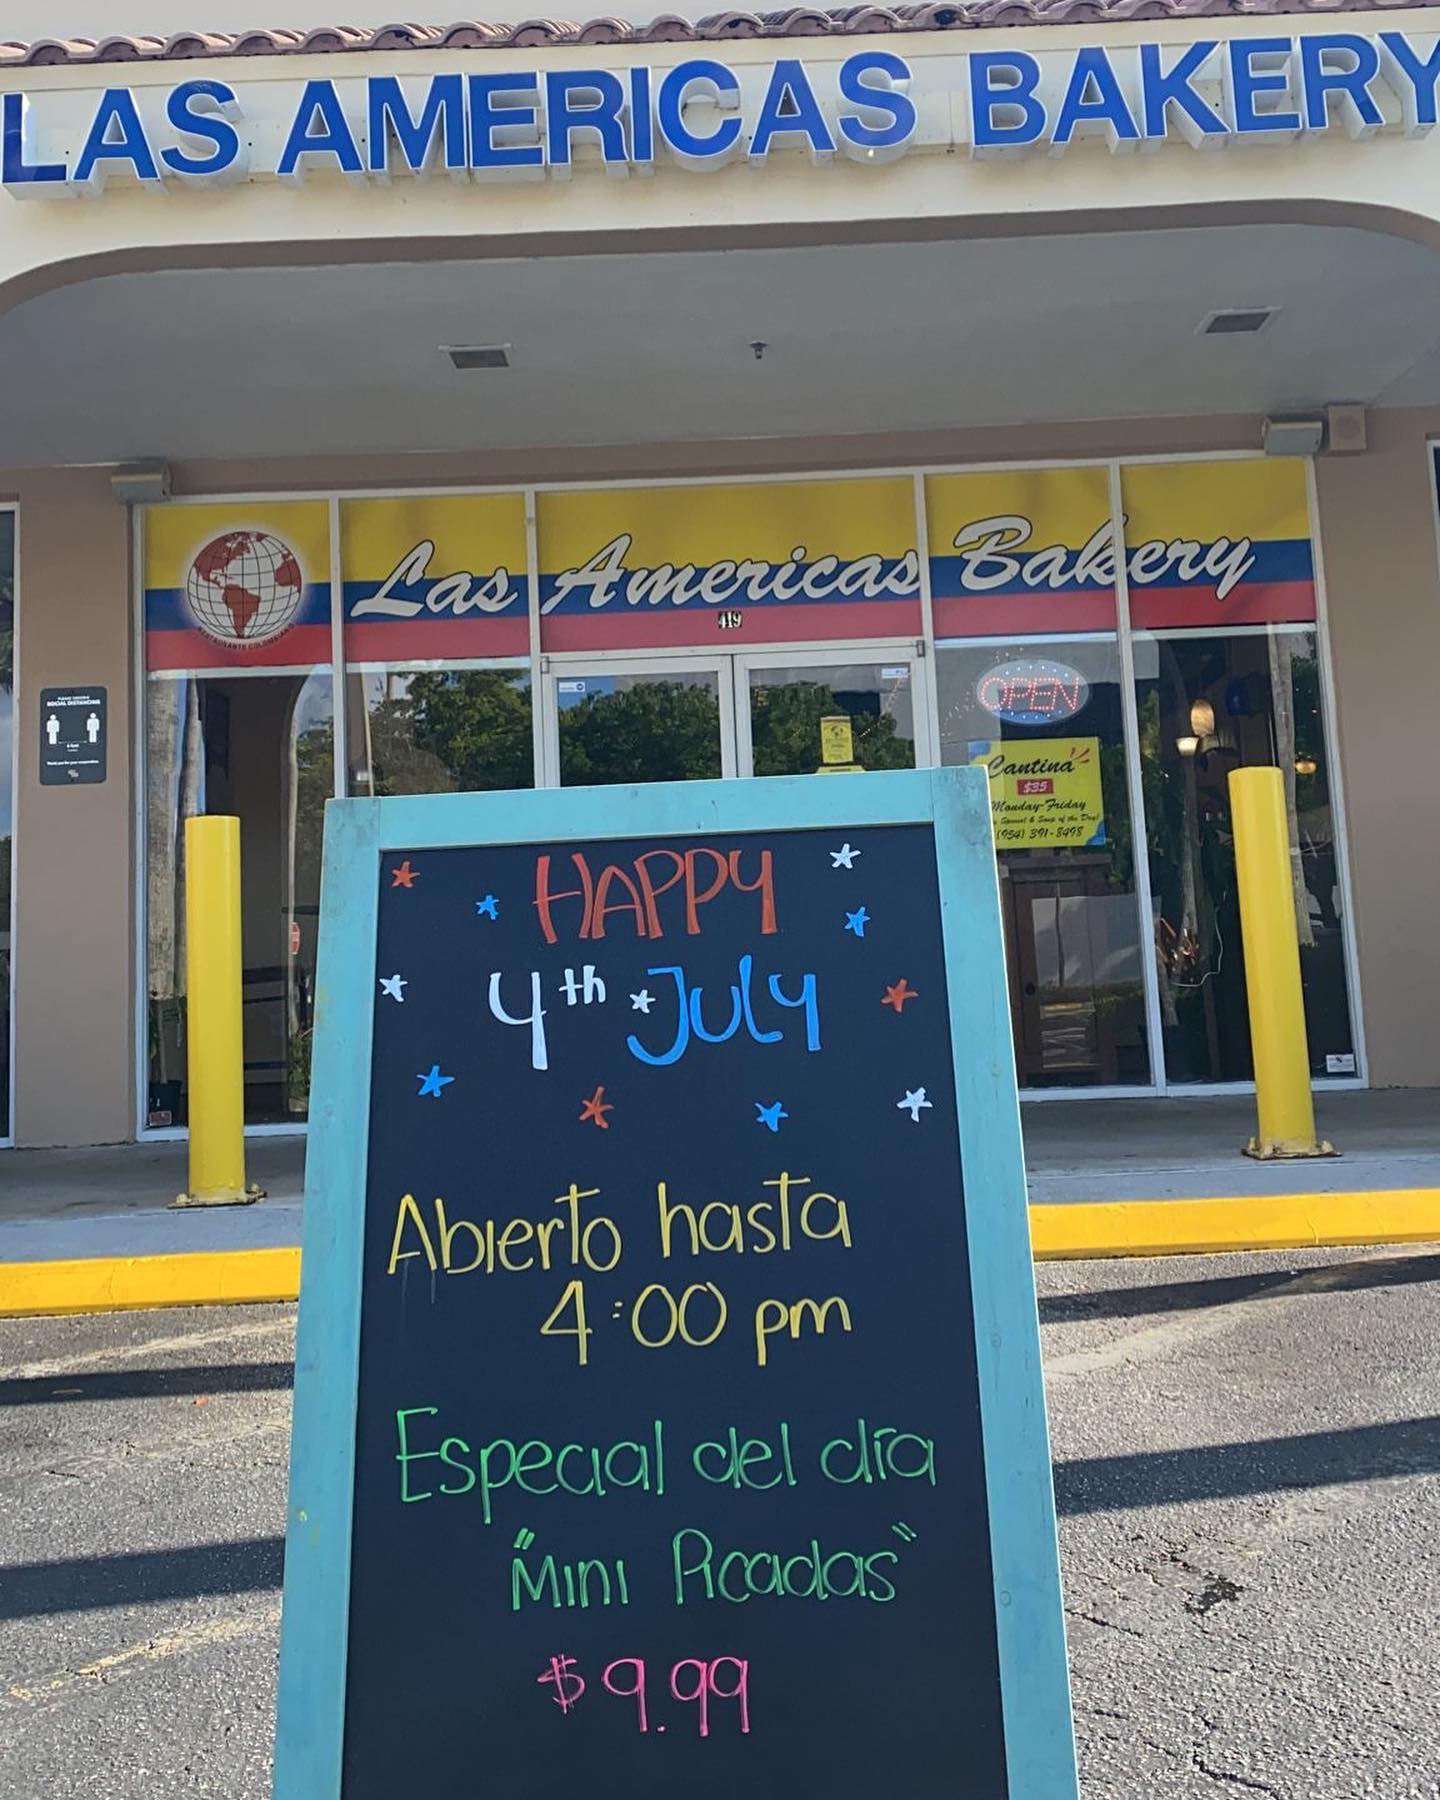 LAS AMERICAS BAKERY
Las Americas Bakery
RESTAURANTE COLOMBIANO
419
PLEASE OBSERVE
SOCIAL DISTANCING
6 feet
Thank you for your cooperation.
OPEN
Cantina
$35
Monday-Friday
Special & Soup of the Day!
(954) 391-8498
HAPPY
4th July
Abierto hasta
4:00 pm
Especial del día
"Mini Picadas"
$9.99